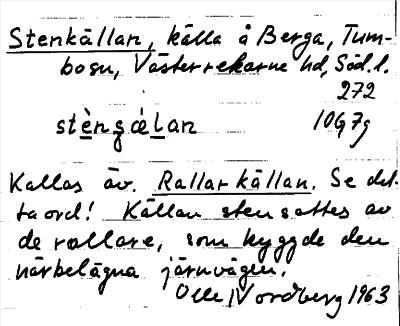 Stenkällan, källa å Berga, Tum-
bosn, Västerrekarne hd, Söd. l.
272
stènʒǽlan 10G7g
Kallas äv. Rallarkällan. Se det-
ta ord! Källan stensattes av
de rallare, som byggde den
närbelägna järnvägen.
Olle Nordberg 1963